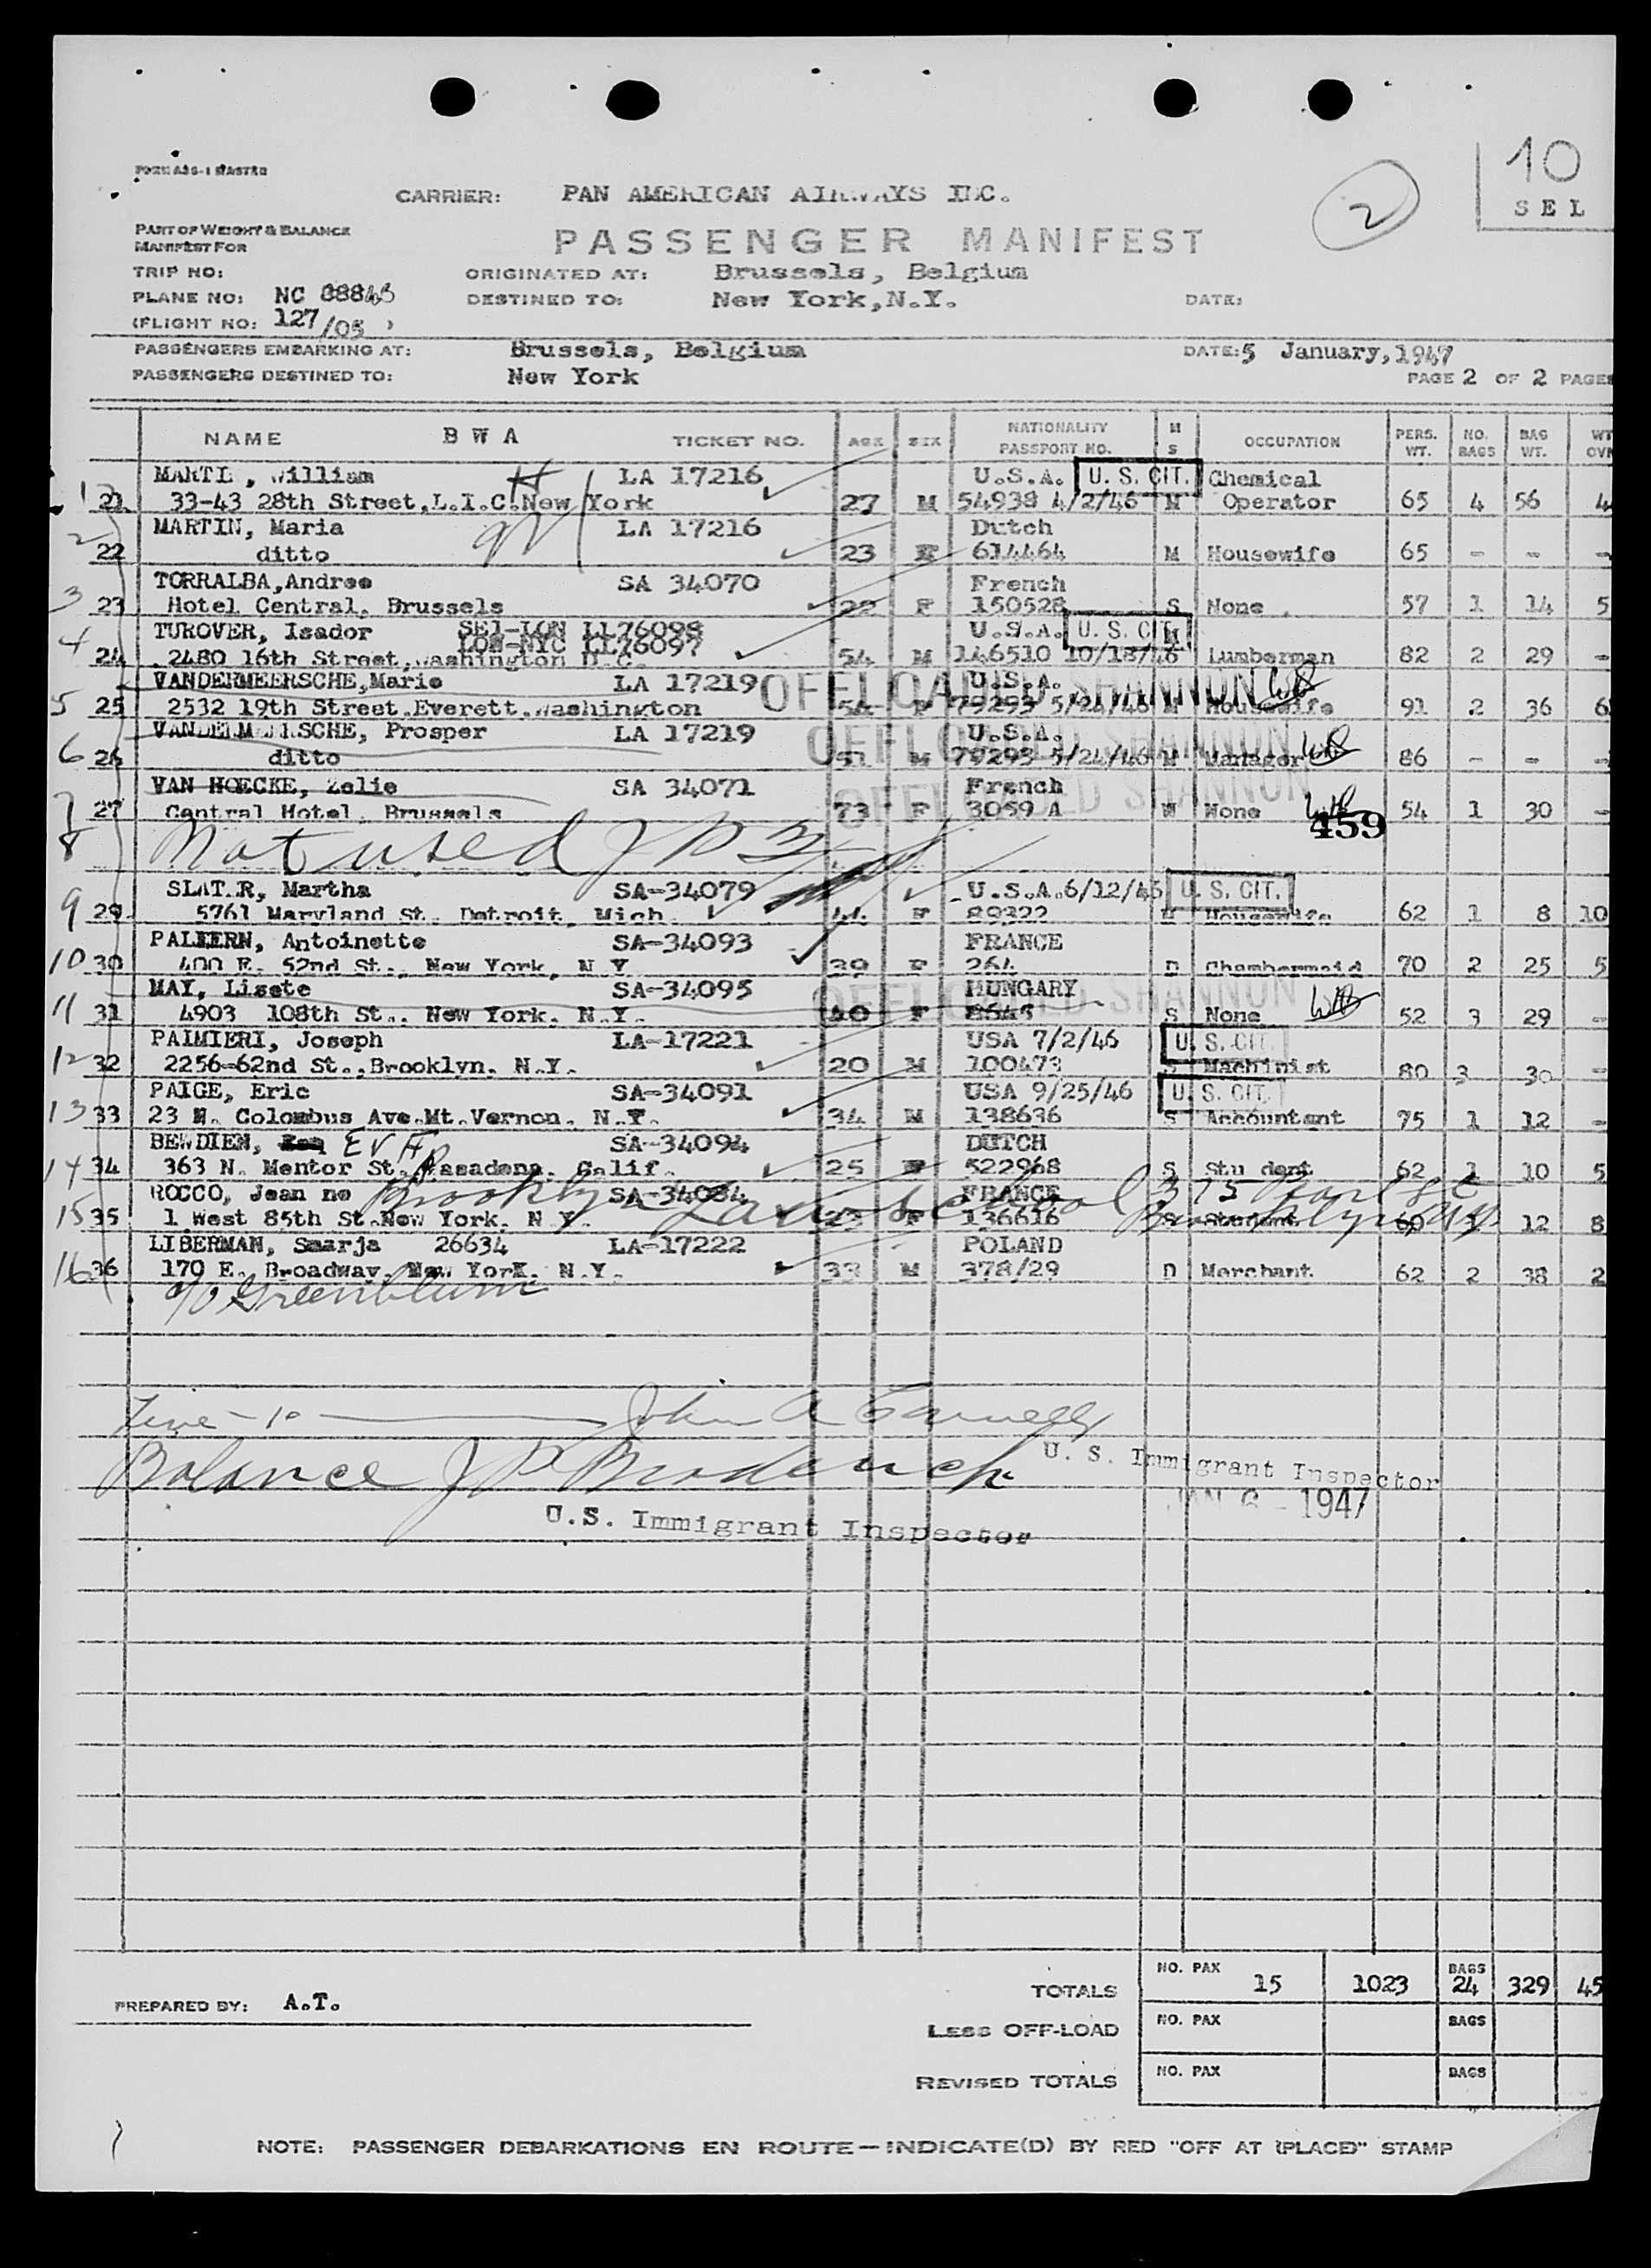 FORM ABG-1 MASTER
10
SEL
CARRIER: PAN AMERICAN AIRWAYS INC.
2
PART OF WEIGHT & BALANCE
MANIFEST FOR
PASSENGER MANIFEST
TRIP NO:
ORIGINATED AT: Brussels, Belgium
PLANE NO: NC 88845
DESTINED TO: New York,N.Y.
DATE:
(FLIGHT NO: 127/05 )
PASSENGERS EMBARKING AT: Brussels, Belgium DATE:5 January,1947
PASSENGERS DESTINED TO: New York
PAGE 2 OF 2 PAGES
NAME B W A TICKET NO. AGE SEX NATIONALITY PASSPORT NO. M S OCCUPATION PERS. WT. NO. BAGS BAG WT. WT OVR
MARTI , William LA 17216 U.S.A. U. S. CIT. Chemical
1 21 33-43 28th Street,L.I.C.New York 27 M 54938 4/2/46 M Operator 65 4 56 4
MARTIN, Maria LA 17216 Dutch
2 22 ditto 23 F 614464 M Housewife 65 - - -
TORRALBA,Andree SA 34070 French
3 23 Hotel Central, Brussels 22 F 150528 S None 57 1 14 5
TUROVER, Isador SEI-LON LL76098 U.S.A. U. S. CIT.
LON-NYC LL76097
4 24 2480 16th Street,Washington D.C. 54 M 146510 10/18/46 M Lumberman 82 2 29 -
VANDERMEERSCHE,Marie LA 17219 U.S.A.
OFFLOADED SHANNON
5 25 2532 19th Street.Everett.Washington 54 F 79293 5/24/46 M Housewife 91 2 36 6
VANDERMEERSCHE, Prosper LA 17219 U.S.A.
OFFLOADED SHANNON
6 26 ditto 51 M 79293 5/24/46 M Manager 86 - - -
VAN HOECKE, Zelie SA 34071 French
OFFLOADED SHANNON
7 27 Central Hotel, Brussels 73 F 3059 A W None 54 1 30 -
459
8 Not used
SLATER, Martha SA-34079 U.S.A.6/12/46 U. S. CIT.
9 29 5761 Maryland St. Detroit, Mich. 44 F 89322 M Housewife 62 1 8 10
PALLERN, Antoinette SA-34093 FRANCE
10 30 400 E. 52nd St., New York, N.Y. 39 F 264 D Chambermaid 70 2 25 5
MAY, Lisete SA-34095 HUNGARY
OFFLOADED SHANNON
11 31 4903 108th St., New York, N.Y. 40 F 8645 S None 52 3 29 -
PALMIERI, Joseph LA-17221 USA 7/2/46 U. S. CIT.
12 32 2256-62nd St.,Brooklyn, N.Y. 20 M 100473 S Machinist 80 3 30 -
PAIGE, Eric SA-34091 USA 9/25/46 U. S. CIT.
13 33 23 N. Colombus Ave.Mt.Vernon, N.Y. 34 M 138636 S Accountant 75 1 12 -
BENDIEN, EVA SA-34094 DUTCH
14 34 363 N. Mentor St. Pasadena, Calif. 25 F 522968 S Stu dent 62 1 10 5
ROCCO, Jean ne SA-34084 FRANCE
Brooklyn Law School 375 Pearl St
15 35 1 West 85th St.New York, N.Y. 23 F 136616 S Student 60 1 12 8
LIBERMAN, Smarja 26634 LA-17222 POLAND
16 36 170 E. Broadway, New York, N.Y. 33 M 378/29 D Merchant 62 2 38 2
c/o Greenblum
Line - 10
Balance J P Broderick
U. S. Immigrant Inspector
JAN 6 - 1947
U.S. Immigrant Inspector
TOTALS NO. PAX 15 1023 BAGS 24 329 45
PREPARED BY: A.T.
LESS OFF-LOAD NO. PAX BAGS
REVISED TOTALS NO. PAX BAGS
NOTE: PASSENGER DEBARKATIONS EN ROUTE—INDICATE(D) BY RED "OFF AT (PLACE)" STAMP